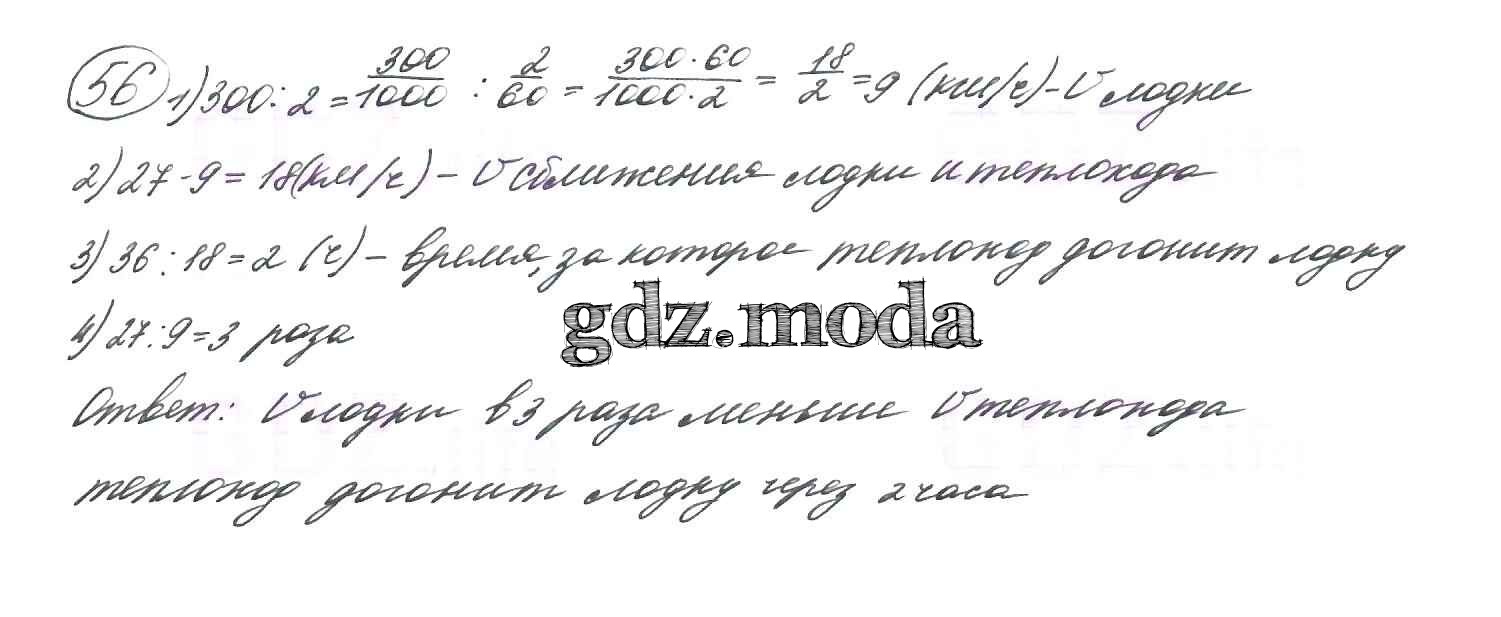 56 1) 300 : 2 = 300/1000 : 2/60 = 300·60/1000·2 = 18/2 = 9 (км/ч) - V лодки
2) 27 - 9 = 18 (км/ч) - V сближения лодки и теплохода
3) 36 : 18 = 2 (ч) - время, за которое теплоход догонит лодку
gdz.moda
4) 27 : 9 = 3 раза
Ответ: V лодки в 3 раза меньше V теплохода
теплоход догонит лодку через 2 часа